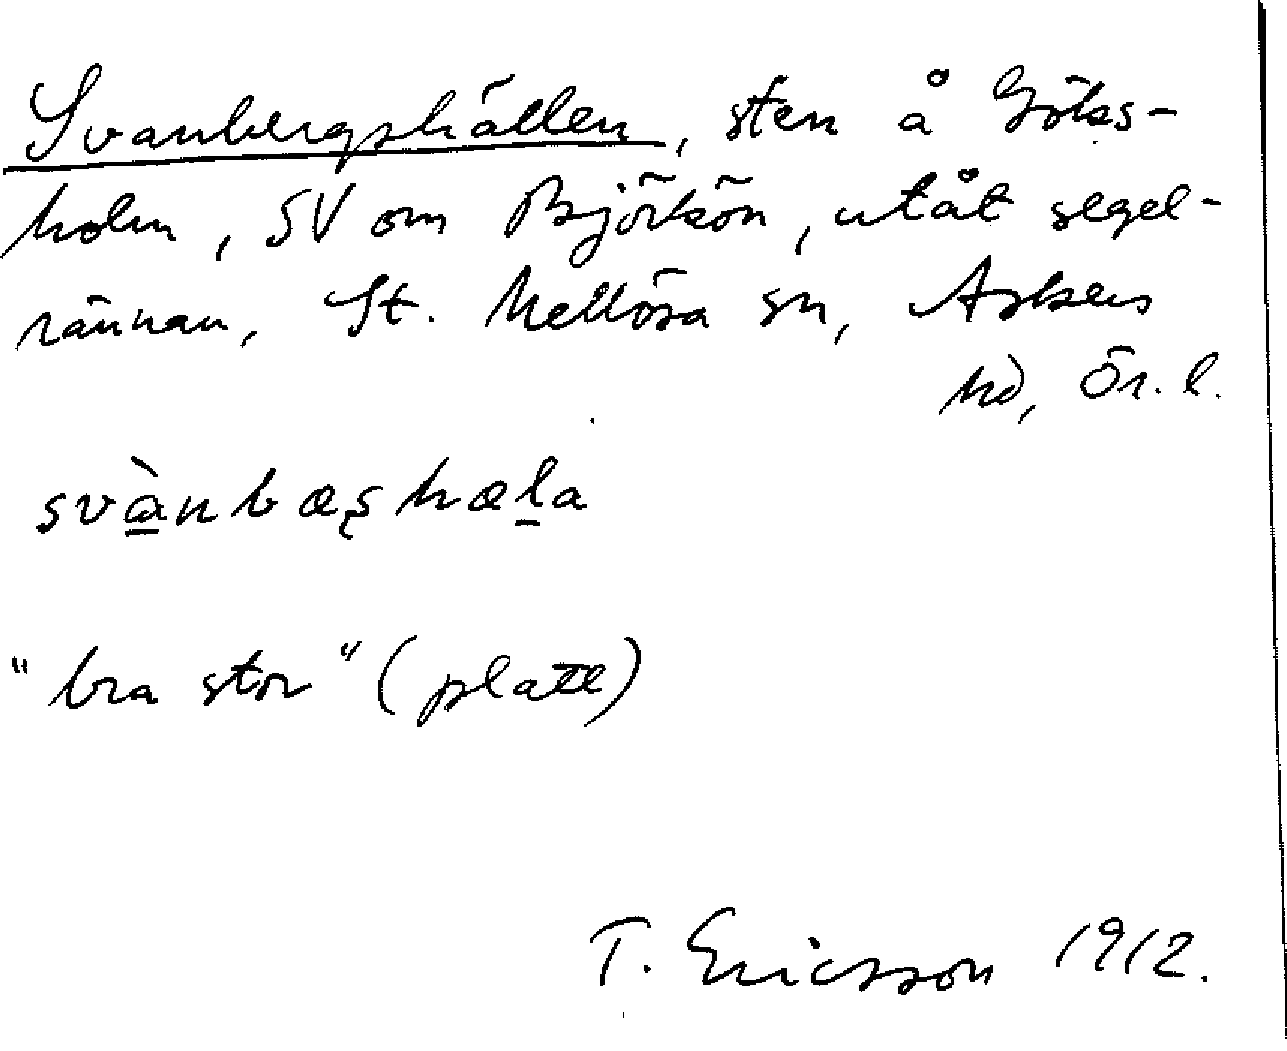 Svanbergshällen, sten å Göks-
holm, SV om Björkön, utåt segel-
rännan, St. Mellösa sn, Askers
hd, Ör. l.
svànbæʂhæḻa
"bra stor" (platt)
T. Ericsson 1912.